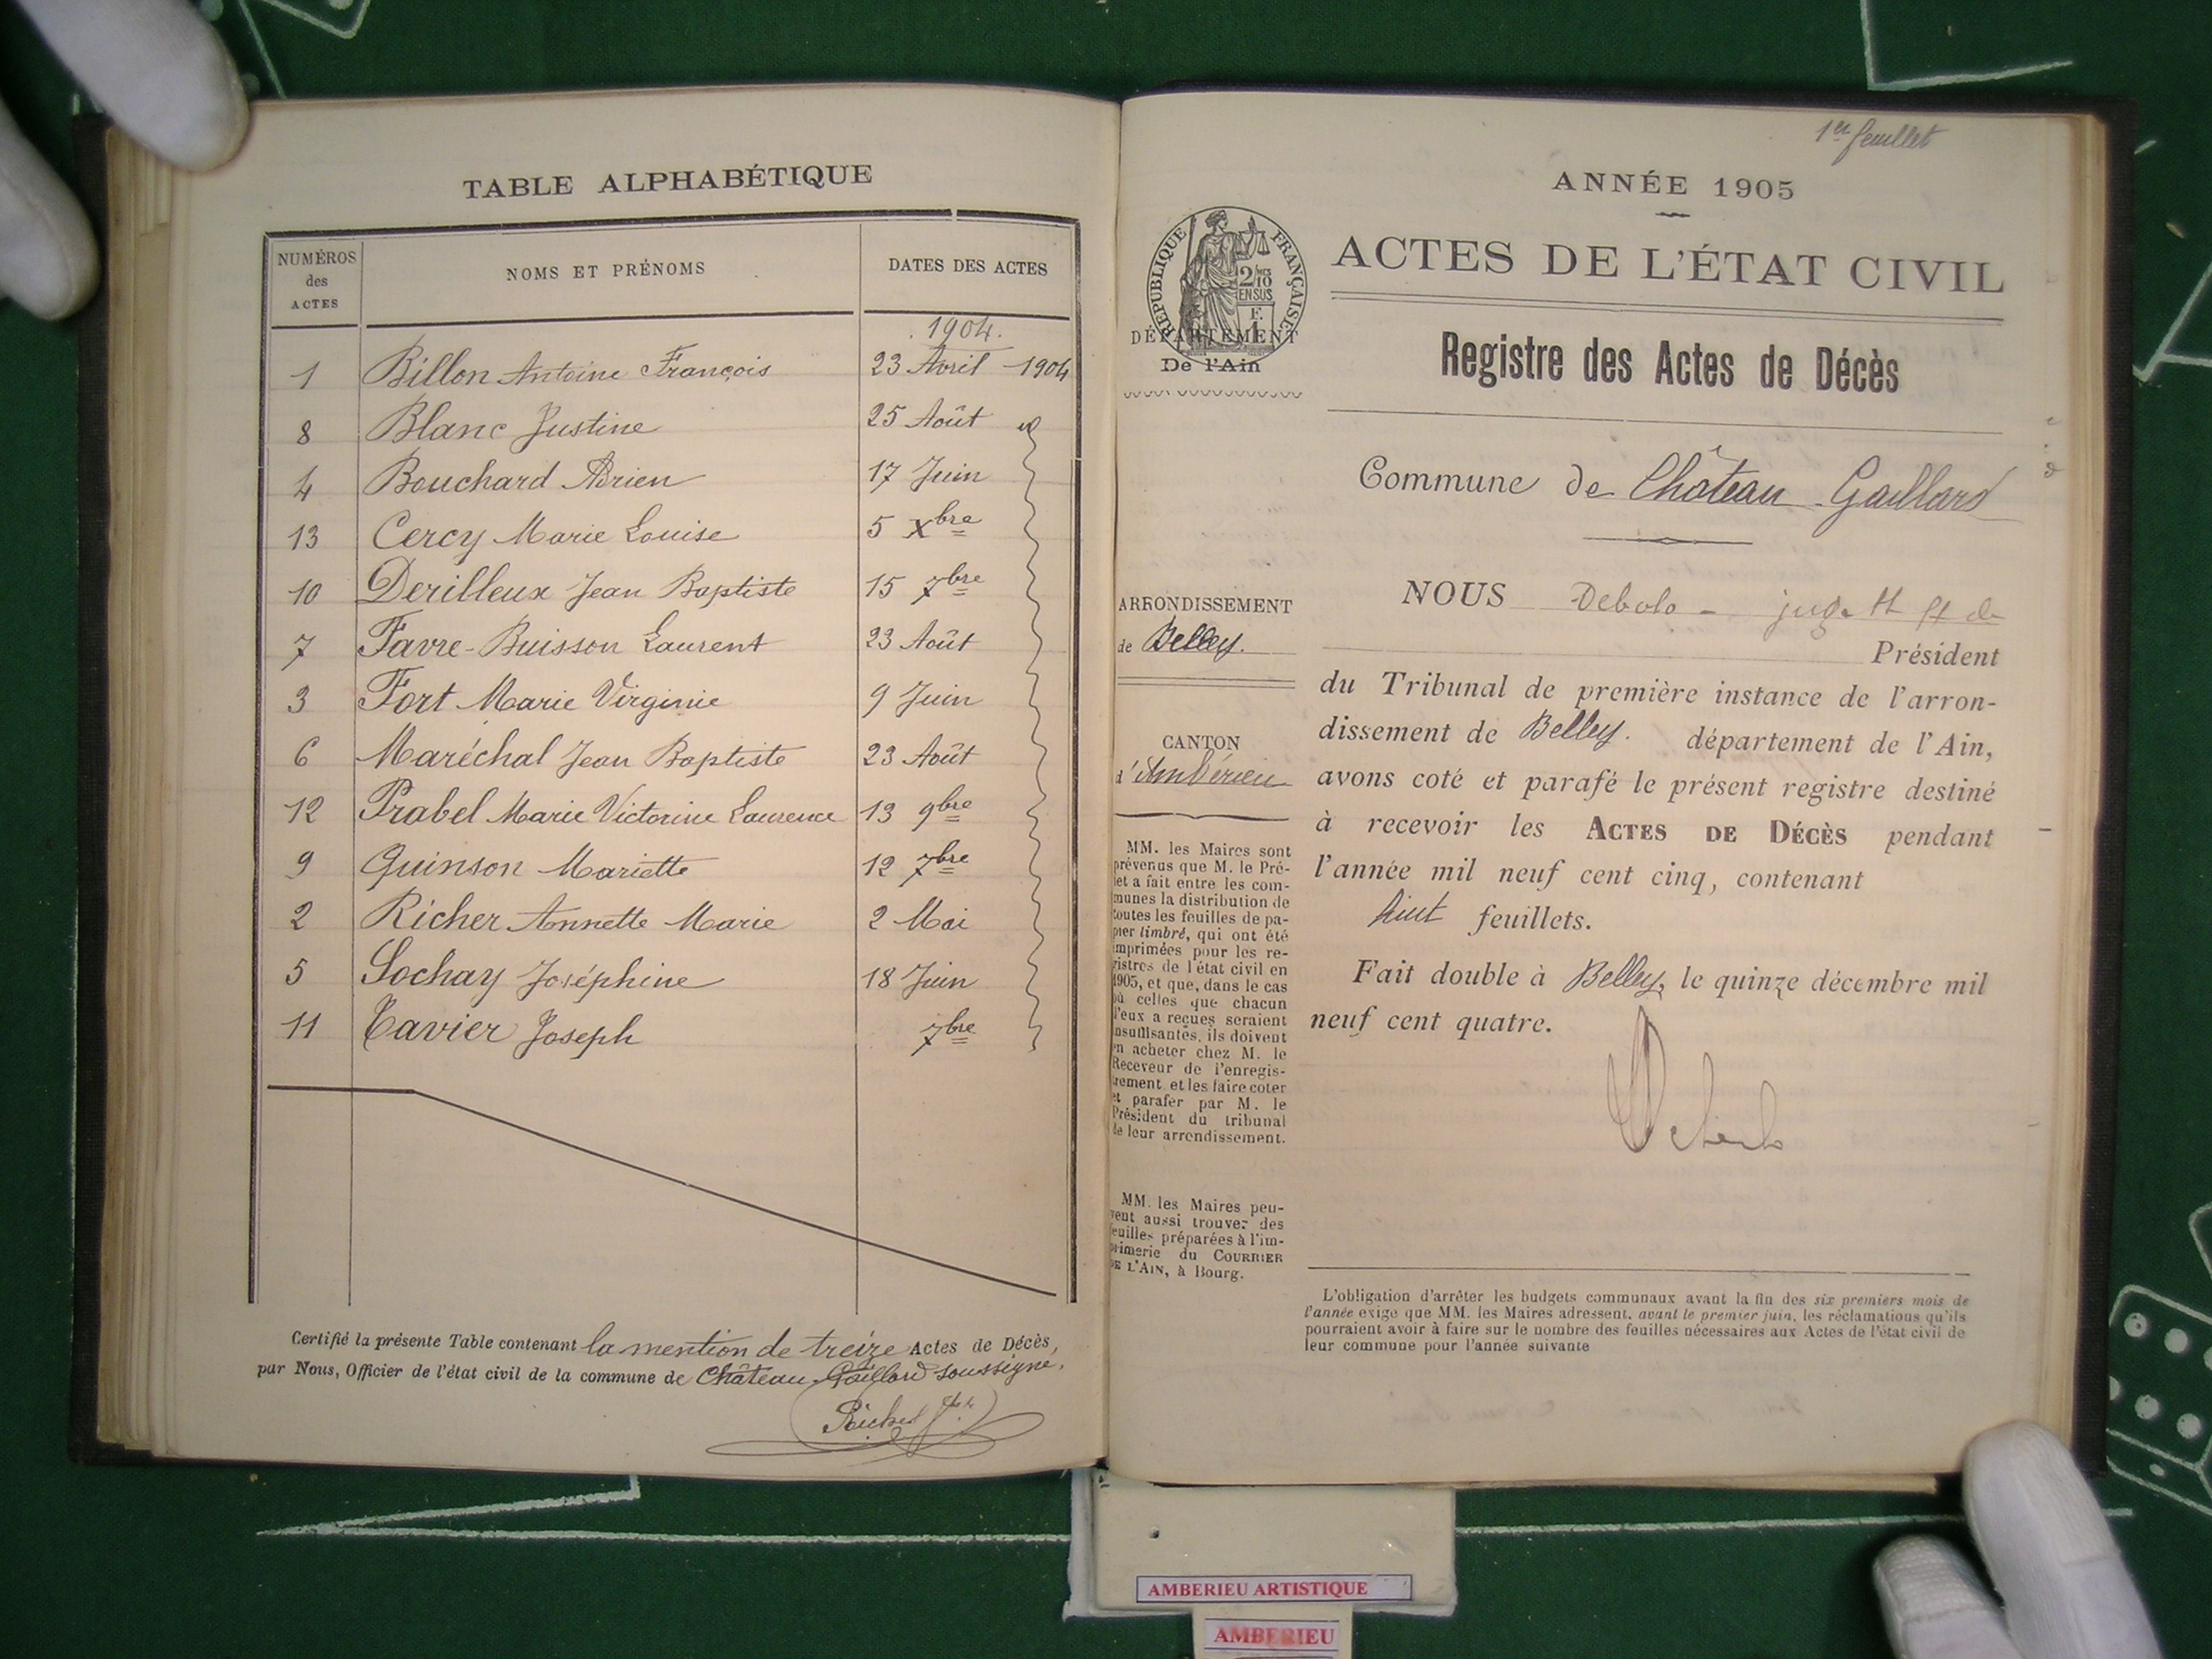 TABLE ALPHABÉTIQUE
NUMÉROS des ACTES NOMS ET PRÉNOMS DATES DES ACTES
1904.
1 Billon Antoine François 23 Avril 1904
8 Blanc Justine 25 Août id
4 Bouchard Adrien 17 Juin
13 Cercy Marie Louise 5 Xbre
10 Derilleux Jean Baptiste 15 7bre
7 Favre-Buisson Laurent 23 Août
3 Fort Marie Virginie 9 Juin
6 Maréchal Jean Baptiste 23 Août
12 Prabel Marie Victorine Laurence 13 9bre
9 Quinson Mariette 12 7bre
2 Richer Annette Marie 2 Mai
5 Sochay Joséphine 18 Juin
11 Tavier Joseph 7bre
Certifié la présente Table contenant la mention de treize Actes de Décès,
par Nous, Officier de l'état civil de la commune de Château-Gaillard soussigné.
1er feuillet
ANNÉE 1905
RÉPUBLIQUE FRANÇAISE
2/10 EN SUS
F.
DÉPARTEMENT
De l'Ain
ACTES DE L'ÉTAT CIVIL
Registre des Actes de Décès
Commune de Château-Gaillard
ARRONDISSEMENT
de Belley.
CANTON
d'Ambérieu
MM. les Maires sont
prévenus que M. le Pré-
fet a fait entre les com-
munes la distribution de
toutes les feuilles de pa-
pier timbré, qui ont été
imprimées pour les re-
gistres de l'état civil en
1905, et que, dans le cas
où celles que chacun
d'eux a reçues seraient
insuffisantes, ils doivent
en acheter chez M. le
Receveur de l'enregis-
trement et les faire coter
et parafer par M. le
Président du tribunal
de leur arrondissement.
MM. les Maires peu-
vent aussi trouver des
feuilles préparées à l'im-
primerie du COURRIER
DE L'AIN, à Bourg.
NOUS
Président
du Tribunal de première instance de l'arron-
dissement de Belley. département de l'Ain,
avons coté et parafé le présent registre destiné
à recevoir les ACTES DE DÉCÈS pendant
l'année mil neuf cent cinq, contenant
huit feuillets.
Fait double à Belley, le quinze décembre mil
neuf cent quatre.
L'obligation d'arrêter les budgets communaux avant la fin des six premiers mois de
l'année exige que MM. les Maires adressent, avant le premier juin, les réclamations qu'ils
pourraient avoir à faire sur le nombre des feuilles nécessaires aux Actes de l'état civil de
leur commune pour l'année suivante
AMBERIEU ARTISTIQUE
AMBERIEU